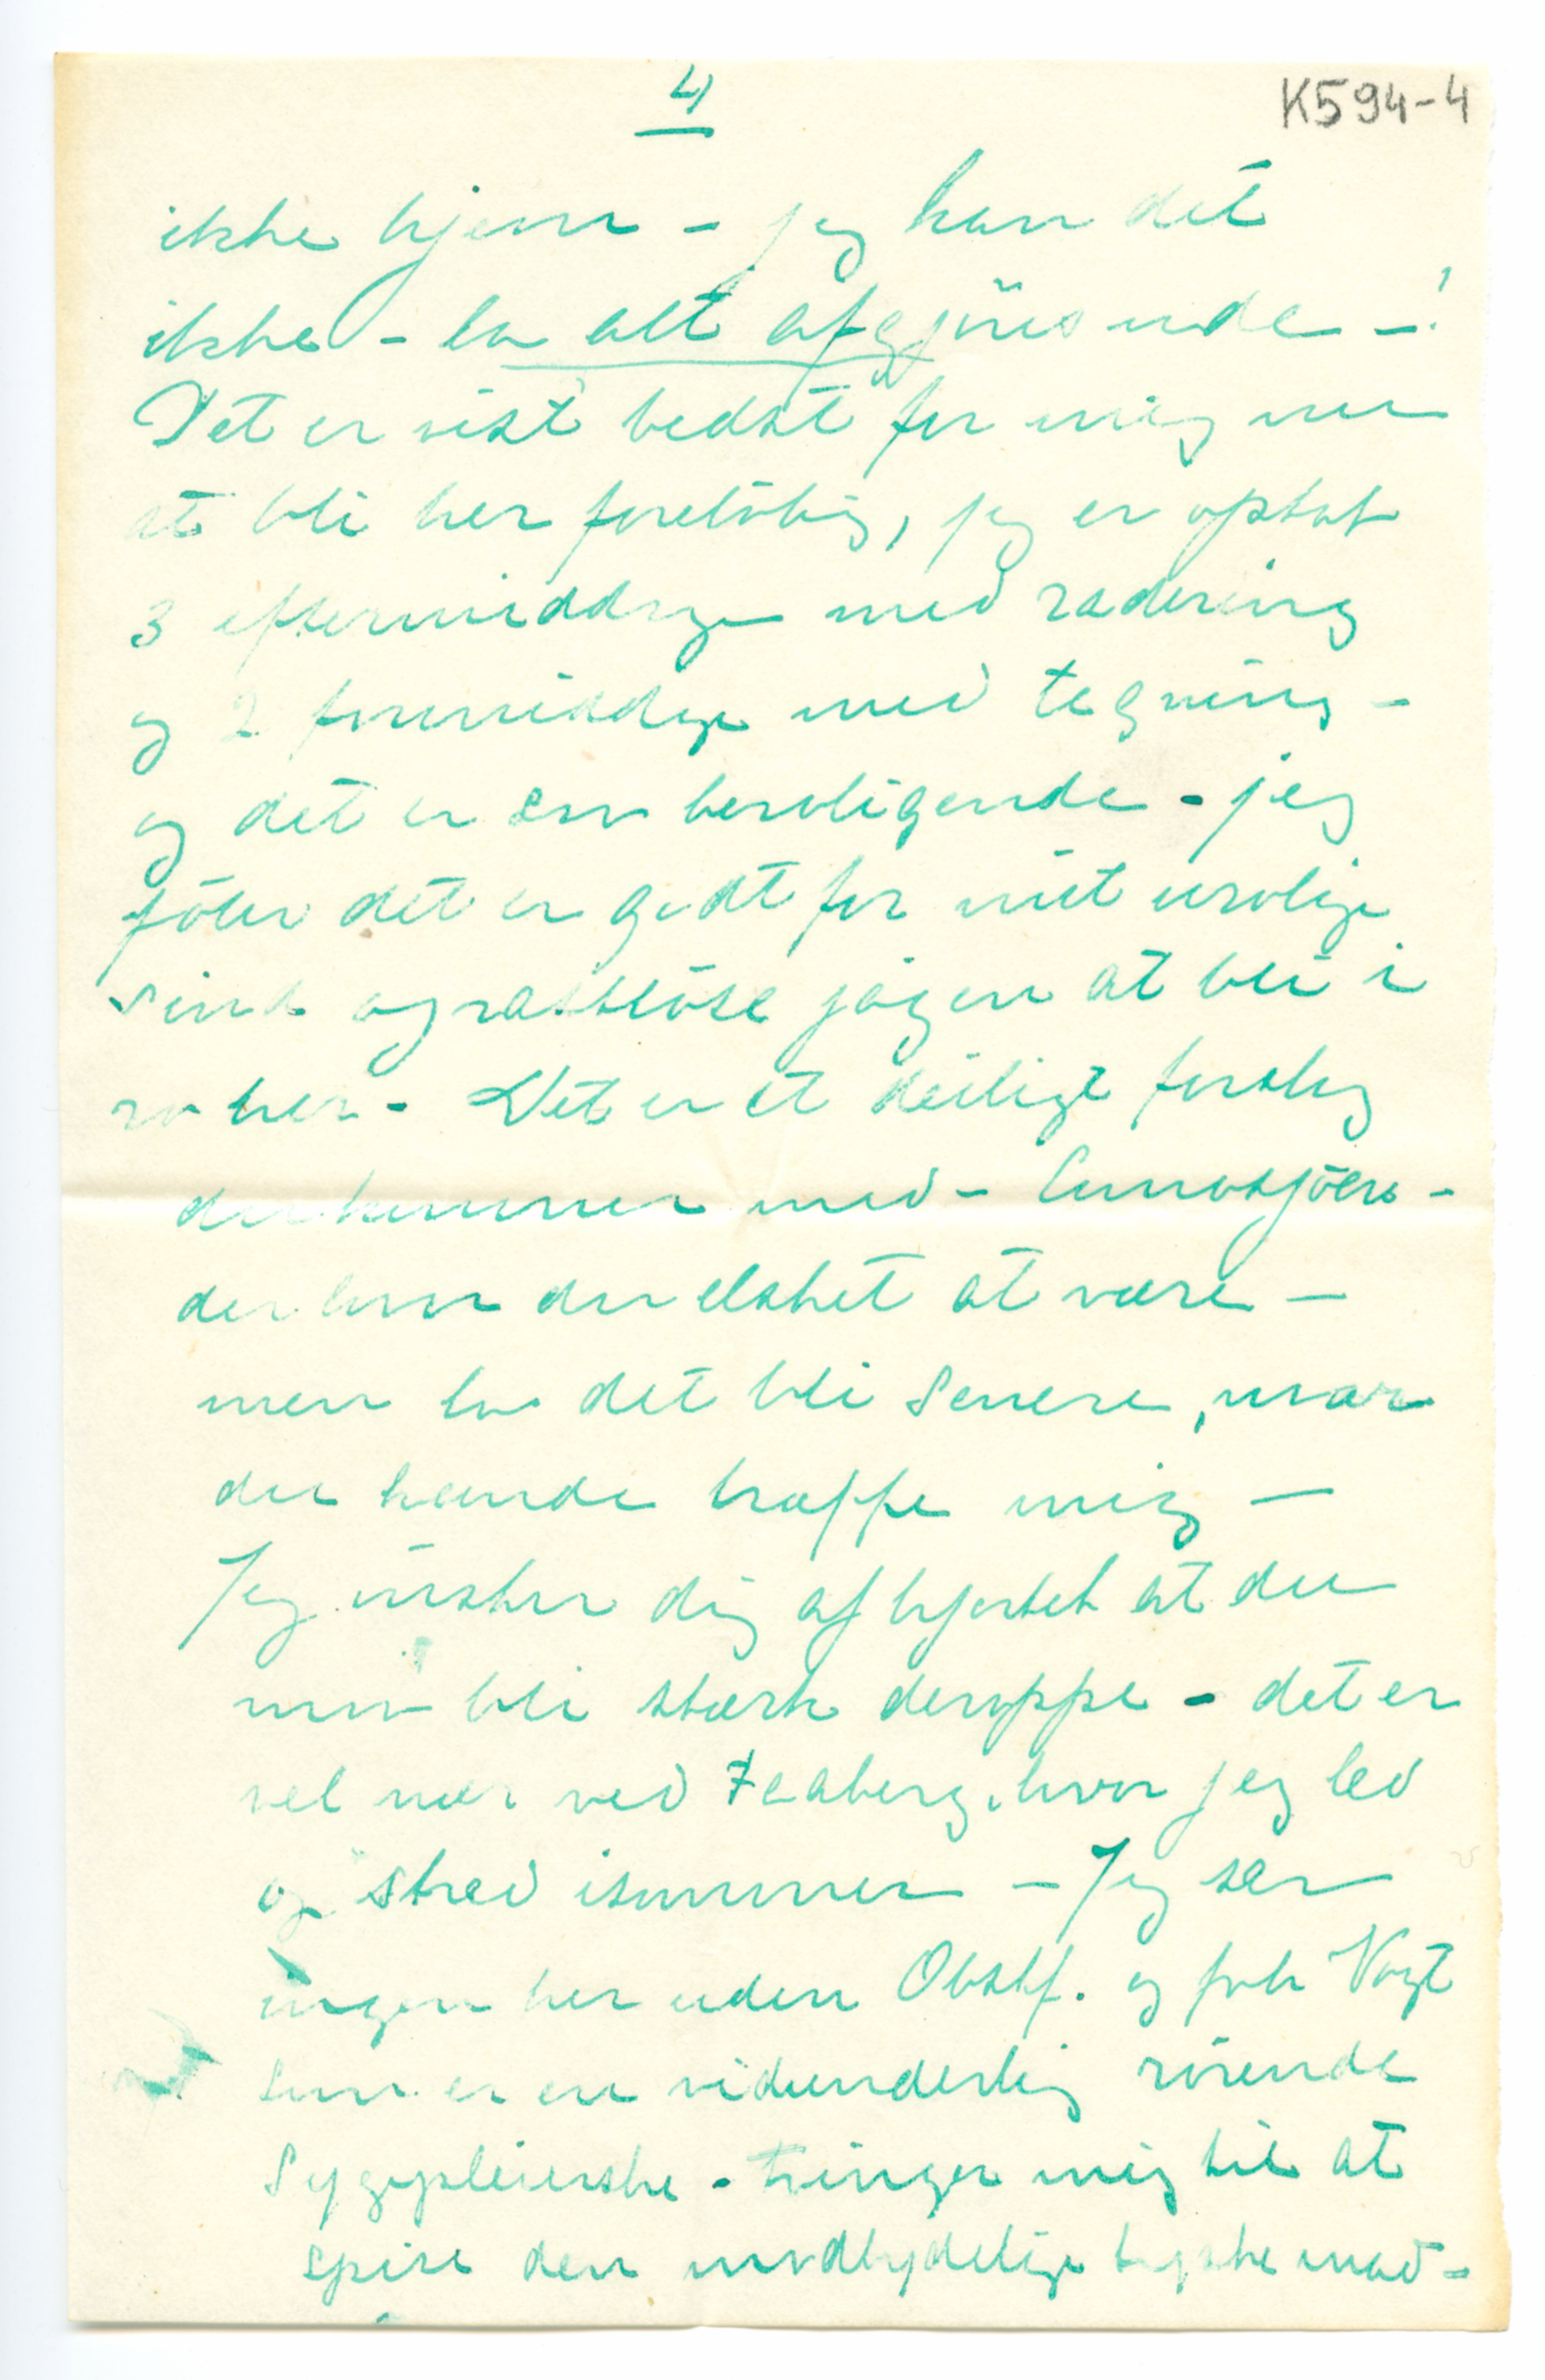 4
K594-4
ikke hjem – jeg kan det
ikke – la alt afgjøres ude –!
Det er vist bedst for mig nu
at bli her foreløbig, jeg er optat
3 eftermiddage med radering
og 2 formiddage med tegning –
og det er saa beroligende – jeg
føler det er godt for mit urolige
sind og rastløse jagen at bli i
ro her – Det er et deiligt forslag
du kommer med –
der har du elsket at være –
men la det bli senere, naar
du kunde træffe mig –
Jeg ønsker dig af hjertet at du
maa bli stærk deroppe – det er
vel nær ved Faaberg, hvor jeg led
og stred isommer – Jeg ser
ingen her uden Obstf. og frk Vogt
hun er en vidunderlig rørende
Sygepleierske – tvinger mig til at
spise den modbydelige tyske mad –